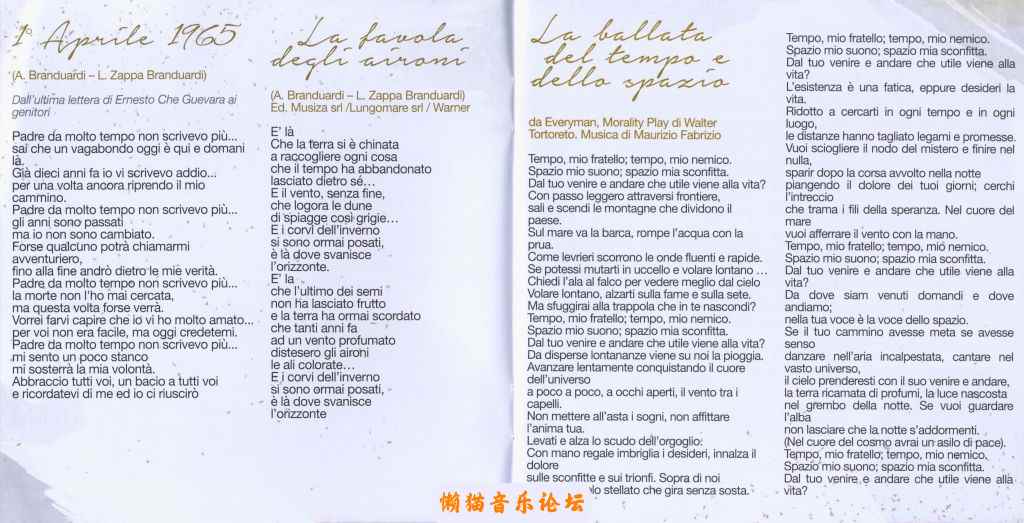 1° Aprile 1965
(A. Branduardi – L. Zappa Branduardi)
Dall'ultima lettera di Ernesto Che Guevara ai
genitori
Padre da molto tempo non scrivevo più...
sai che un vagabondo oggi è qui e domani
là.
Già dieci anni fa io vi scrivevo addio...
per una volta ancora riprendo il mio
cammino.
Padre da molto tempo non scrivevo più...
gli anni sono passati
ma io non sono cambiato.
Forse qualcuno potrà chiamarmi
avventuriero,
fino alla fine andrò dietro le mie verità.
Padre da molto tempo non scrivevo più...
la morte non l'ho mai cercata,
ma questa volta forse verrà.
Vorrei farvi capire che io vi ho molto amato...
per voi non era facile, ma oggi credetemi.
Padre da molto tempo non scrivevo più...
mi sento un poco stanco
mi sosterrà la mia volontà.
Abbraccio tutti voi, un bacio a tutti voi
e ricordatevi di me ed io ci riuscirò
La favola
degli aironi
(A. Branduardi – L. Zappa Branduardi)
Ed. Musiza srl /Lungomare srl / Warner
E' là
Che la terra si è chinata
a raccogliere ogni cosa
che il tempo ha abbandonato
lasciato dietro sé...
E il vento, senza fine,
che logora le dune
di spiagge così grigie...
E i corvi dell'inverno
si sono ormai posati,
è là dove svanisce
l'orizzonte.
E' la
che l'ultimo dei semi
non ha lasciato frutto
e la terra ha ormai scordato
che tanti anni fa
ad un vento profumato
distesero gli aironi
le ali colorate...
E i corvi dell'inverno
si sono ormai posati,
è là dove svanisce
l'orizzonte
La ballata
del tempo e
dello spazio
da Everyman, Morality Play di Walter
Tortoreto. Musica di Maurizio Fabrizio
Tempo, mio fratello; tempo, mio nemico.
Spazio mio suono; spazio mia sconfitta.
Dal tuo venire e andare che utile viene alla vita?
Con passo leggero attraversi frontiere,
sali e scendi le montagne che dividono il
paese.
Sul mare va la barca, rompe l'acqua con la
prua.
Come levrieri scorrono le onde fluenti e rapide.
Se potessi mutarti in uccello e volare lontano ...
Chiedi l'ala al falco per vedere meglio dal cielo
Volare lontano, alzarti sulla fame e sulla sete.
Ma sfuggirai alla trappola che in te nascondi?
Tempo, mio fratello; tempo, mio nemico.
Spazio mio suono; spazio mia sconfitta.
Dal tuo venire e andare che utile viene alla vita?
Da disperse lontananze viene su noi la pioggia.
Avanzare lentamente conquistando il cuore
dell'universo
a poco a poco, a occhi aperti, il vento tra i
capelli.
Non mettere all'asta i sogni, non affittare
l'anima tua.
Levati e alza lo scudo dell'orgoglio:
Con mano regale imbriglia i desideri, innalza il
dolore
sulle sconfitte e sui trionfi. Sopra di noi
lo stellato che gira senza sosta.
Tempo, mio fratello; tempo, mio nemico.
Spazio mio suono; spazio mia sconfitta.
Dal tuo venire e andare che utile viene alla
vita?
L'esistenza è una fatica, eppure desideri la
vita.
Ridotto a cercarti in ogni tempo e in ogni
luogo,
le distanze hanno tagliato legami e promesse.
Vuoi sciogliere il nodo del mistero e finire nel
nulla,
sparir dopo la corsa avvolto nella notte
piangendo il dolore dei tuoi giorni; cerchi
l'intreccio
che trama i fili della speranza. Nel cuore del
mare
vuoi afferrare il vento con la mano.
Tempo, mio fratello; tempo, mio nemico.
Spazio mio suono; spazio mia sconfitta.
Dal tuo venire e andare che utile viene alla
vita?
Da dove siam venuti domandi e dove
andiamo;
nella tua voce è la voce dello spazio.
Se il tuo cammino avesse meta se avesse
senso
danzare nell'aria incalpestata, cantare nel
vasto universo,
il cielo prenderesti con il suo venire e andare,
la terra ricamata di profumi, la luce nascosta
nel grembo della notte. Se vuoi guardare
l'alba
non lasciare che la notte s'addormenti.
(Nel cuore del cosmo avrai un asilo di pace).
Tempo, mio fratello; tempo, mio nemico.
Spazio mio suono; spazio mia sconfitta.
Dal tuo venire e andare che utile viene alla
vita?
懒猫音乐论坛